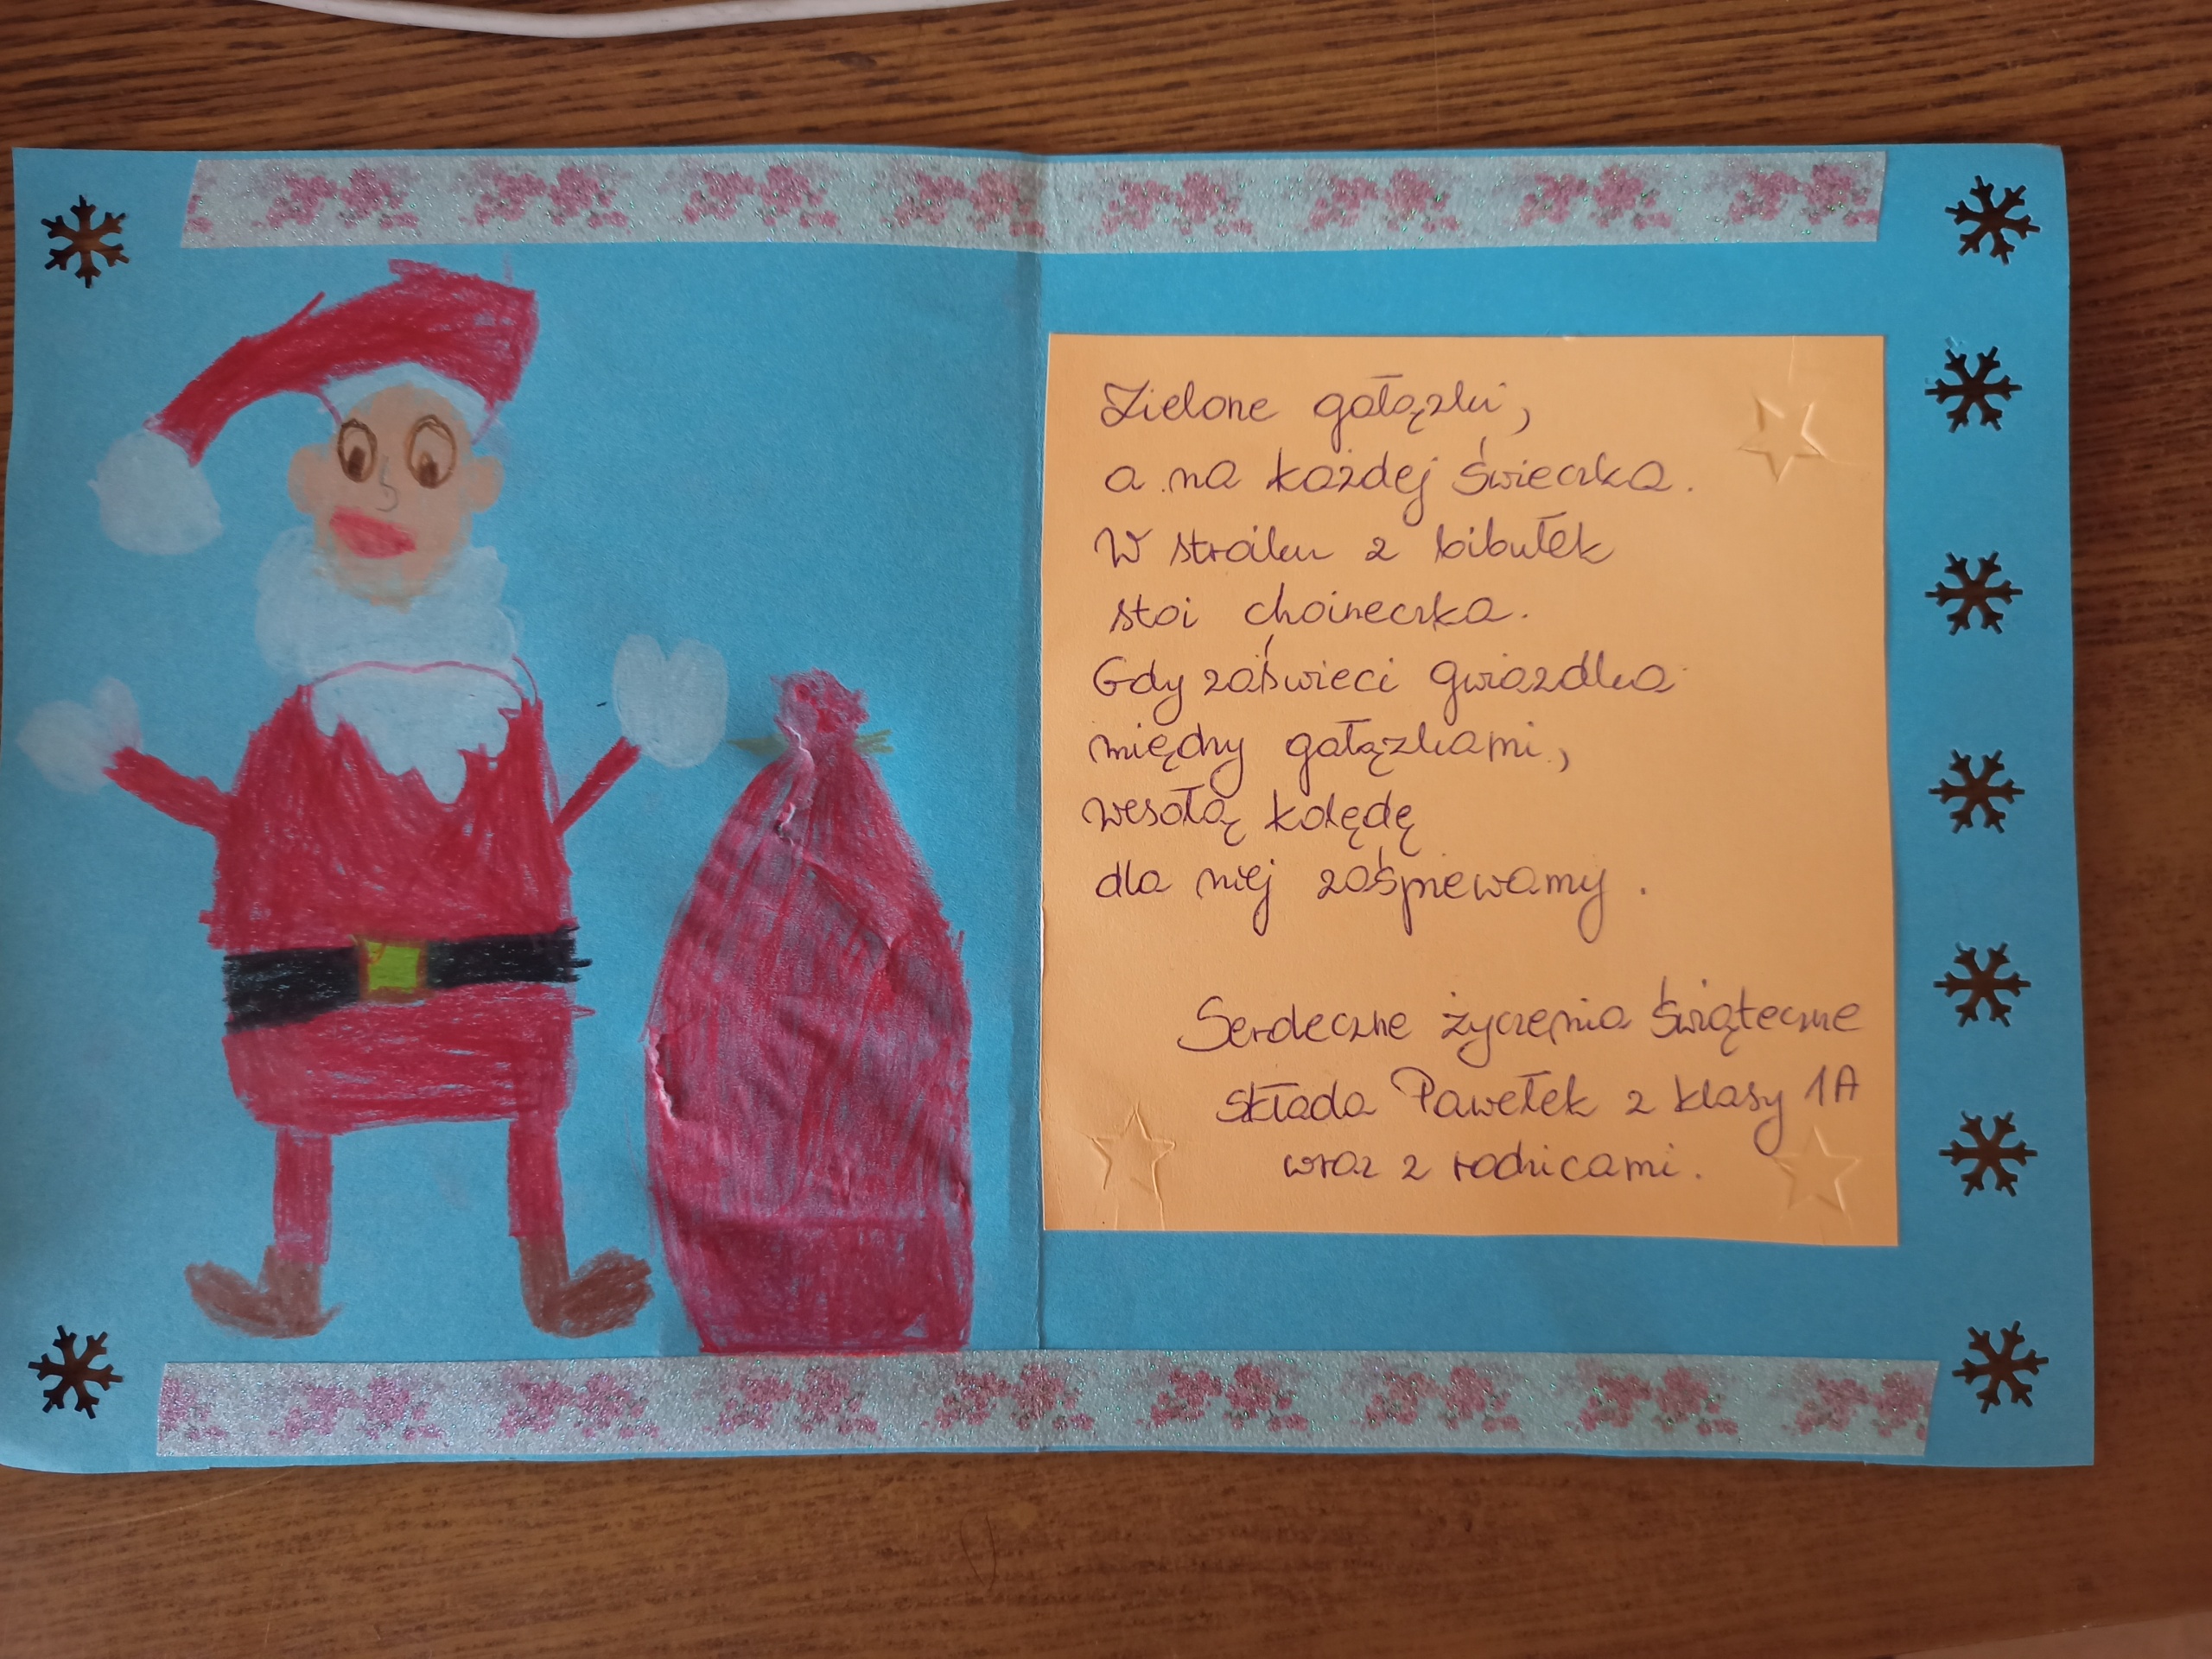 Zielone gałązki,
a na każdej świeczka.
W stroiku z bibułek
stoi choineczka.
Gdy zaświeci gwiazdka
między gałązkami,
wesołą kolędę
dla niej zaśpiewamy.
Serdeczne życzenia świąteczne
składa Pawełek z klasy 1A
wraz z rodzicami.